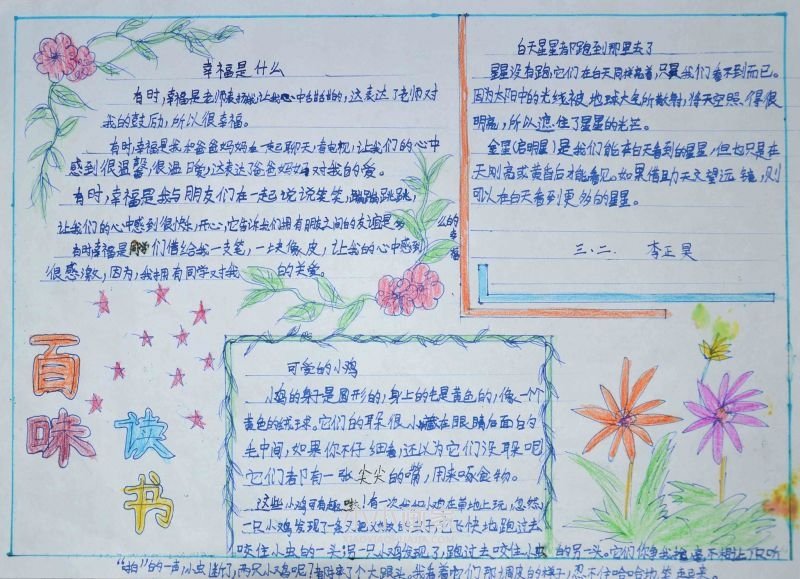 幸福是什么
有时,幸福是老师表扬我,让我心中甜甜的,这表达了老师对
我的鼓励,所以很幸福。
有时,幸福是我和爸爸妈妈在一起聊天,看电视,让我们的心中
感到很温馨,很温暖,这表达了爸爸妈妈对我的爱。
有时,幸福是我与朋友们在一起说说笑笑,蹦蹦跳跳,
让我们的心中感到很快乐,开心,它告诉我们拥有朋友之间的友谊是多么的幸福
有时幸福是同学们借给我一支笔,一块像皮,让我的心中感到
很感激,因为,我拥有同学对我的关爱。
白天星星都跑到那里去了
星星没有跑,它们在白天同样亮着,只是我们看不到而已。
因为太阳中的光线被地球大气所散射,将天空照得很
明亮,所以遮住了星星的光芒。
金星(启明星)是我们能在白天看到的星星,但也只是在
天刚亮或黄昏后才能看见。如果借助天文望远镜,则
可以在白天看到更多的星星。
三、二. 李正昊
百味
读书
可爱的小鸡
小鸡的身子是圆形的,身上的毛是黄色的,像一个个
黄色的绒球。它们的耳朵很小,藏在眼睛后面白白
毛中间,如果你不仔细看,还以为它们没耳朵呢
它们都有一张尖尖的嘴,用来啄食物。
这些小鸡可有趣啦!有一次我和小鸡在草地上玩,忽然
一只小鸡发现了一条又肥又的虫子,它飞快地跑过去
咬住小虫的一头,另一只小鸡发现了,跑过去咬住小虫的另一头。它们你争我抢,毫不相让,只听
“啪”的一声,小虫断了,两只小鸡呢?都摔了个大跟头。我看着它们那调皮的样子,忍不住哈哈地笑起来